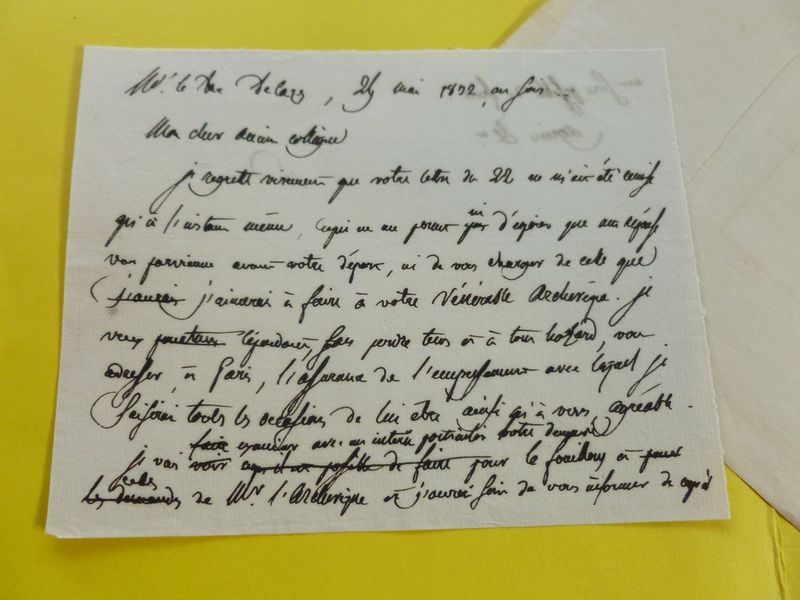 Mr. le Duc Decazes, 24 mai 1832, au soir.
Mon cher ancien collègue
je regrette vivement que votre lettre du 22 ne m'ait été remise
qu'à l'instant même, ce qui ne me permet ni d'espérer que ma réponse
vous parvienne avant votre départ, ni de vous charger de celle que
j'aurais j'aimerais à faire à votre Vénérable Archevêque. je
veux pourtant cependant, sans perdre tems et à tout hazard, vous
adresser, à Paris, l'assurance de l'empressement avec lequel je
saisirai toutes les occasions de lui être ainsi qu'à vous, agréable.
faire examiner avec un intérêt particulier votre demande
je vais voir s'il est possible de faire pour le et pour
celles
les demandes de Mr. l'Archevêque et j'aurai soin de vous informer de